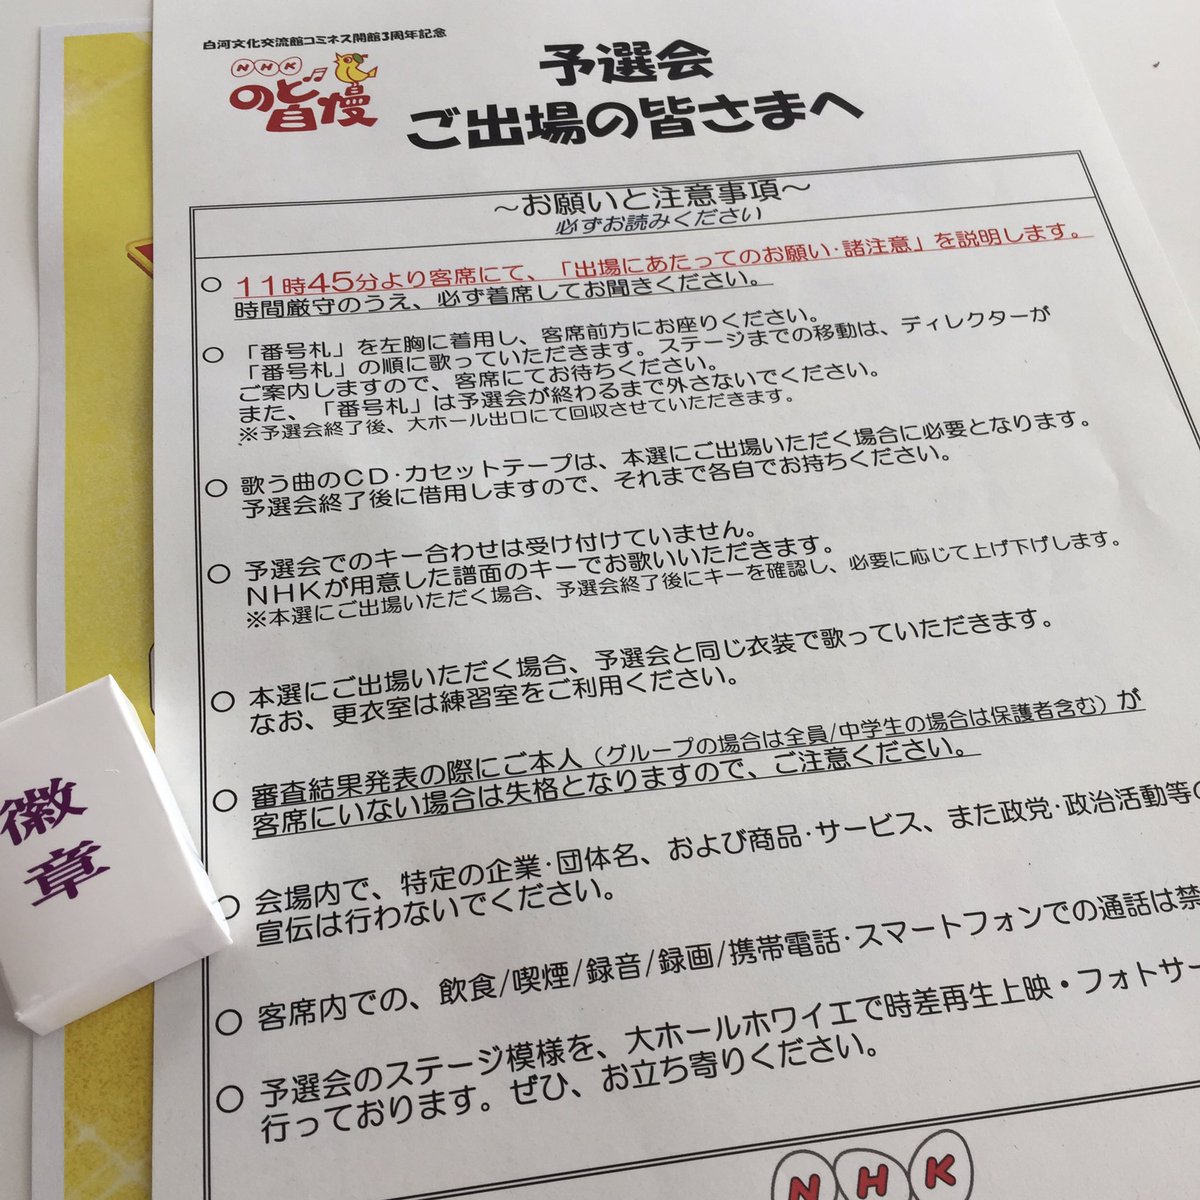 白河文化交流館コミネス開館3周年記念
NHK
のど自慢
予選会
ご出場の皆さまへ
～お願いと注意事項～
必ずお読みください
○ 11時45分より客席にて、「出場にあたってのお願い・諸注意」を説明します。
時間厳守のうえ、必ず着席してお聞きください。
○ 「番号札」を左胸に着用し、客席前方にお座りください。
「番号札」の順に歌っていただきます。ステージまでの移動は、ディレクターが
ご案内しますので、客席にてお待ちください。
また、「番号札」は予選会が終わるまで外さないでください。
※予選会終了後、大ホール出口にて回収させていただきます。
○ 歌う曲のCD・カセットテープは、本選にご出場いただく場合に必要となります。
予選会終了後に借用しますので、それまで各自でお持ちください。
○ 予選会でのキー合わせは受け付けていません。
NHKが用意した譜面のキーでお歌いいただきます。
※本選にご出場いただく場合、予選会終了後にキーを確認し、必要に応じて上げ下げします。
○ 本選にご出場いただく場合、予選会と同じ衣装で歌っていただきます。
なお、更衣室は練習室をご利用ください。
○ 審査結果発表の際にご本人（グループの場合は全員/中学生の場合は保護者含む）が
客席にいない場合は失格となりますので、ご注意ください。
○ 会場内で、特定の企業・団体名、および商品・サービス、また政党・政治活動等の
宣伝は行わないでください。
○ 客席内での、飲食/喫煙/録音/録画/携帯電話・スマートフォンでの通話は禁
○ 予選会のステージ模様を、大ホールホワイエで時差再生上映・フォトサー
行っております。ぜひ、お立ち寄りください。
NHK
徽章